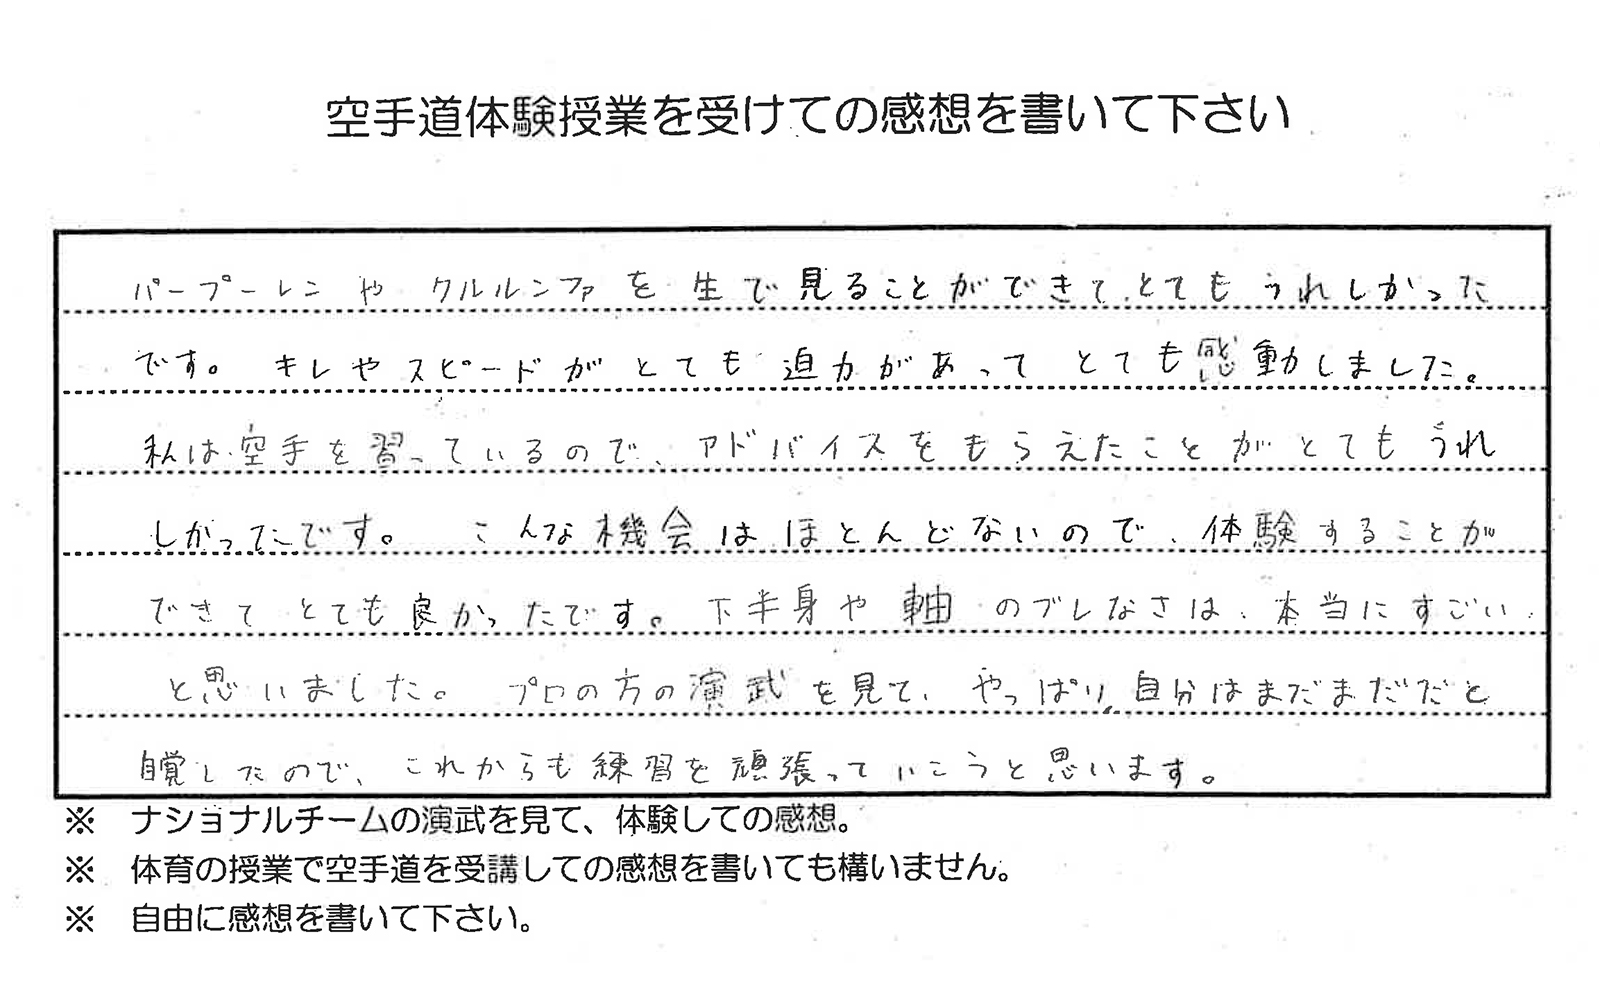 空手道体験授業を受けての感想を書いて下さい
パープーレンや クルルンファを 生で見ることができて、とてもうれしかった
です。 キレやスピードがとても迫力があって とても感動しました。
私は空手を習っているので、アドバイスをもらえたことがとてもうれ
しかったです。 こんな機会はほとんどないので、体験することが
できて とても良かったです。下半身や軸のブレなさは、本当にすごい
と思いました。 プロの方の演武を見て、やっぱり、自分はまだまだだと
自覚したので、これからも練習を頑張っていこうと思います。
※ ナショナルチームの演武を見て、体験しての感想。
※ 体育の授業で空手道を受講しての感想を書いても構いません。
※ 自由に感想を書いて下さい。